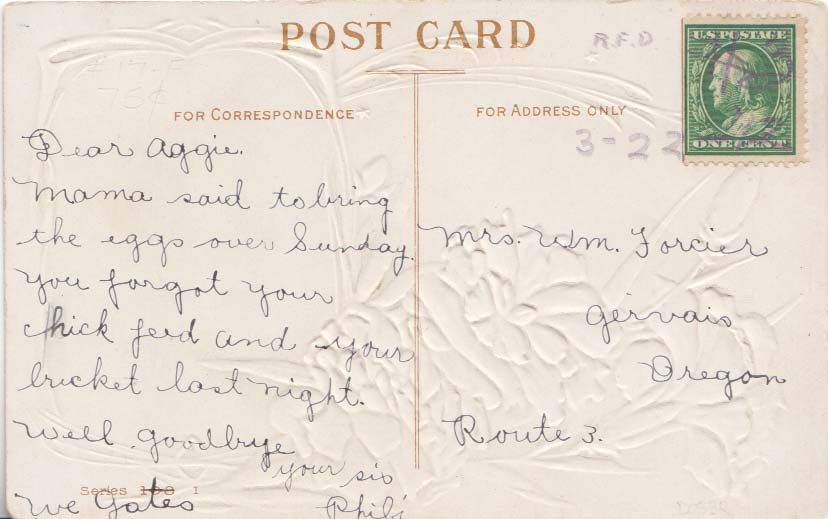 POST CARD
R.F.D
U.S. POSTAGE
ONE CENT
#17-F
75¢
FOR CORRESPONDENCE
FOR ADDRESS ONLY
3-22
Dear Aggie.
Mama said to bring
the eggs over Sunday.
You forgot your
chick feed and your
bucket last night.
Well goodbye
your sis
Mrs. Wm. Forcier
Gervais
Oregon
Route 3.
Series 100 I